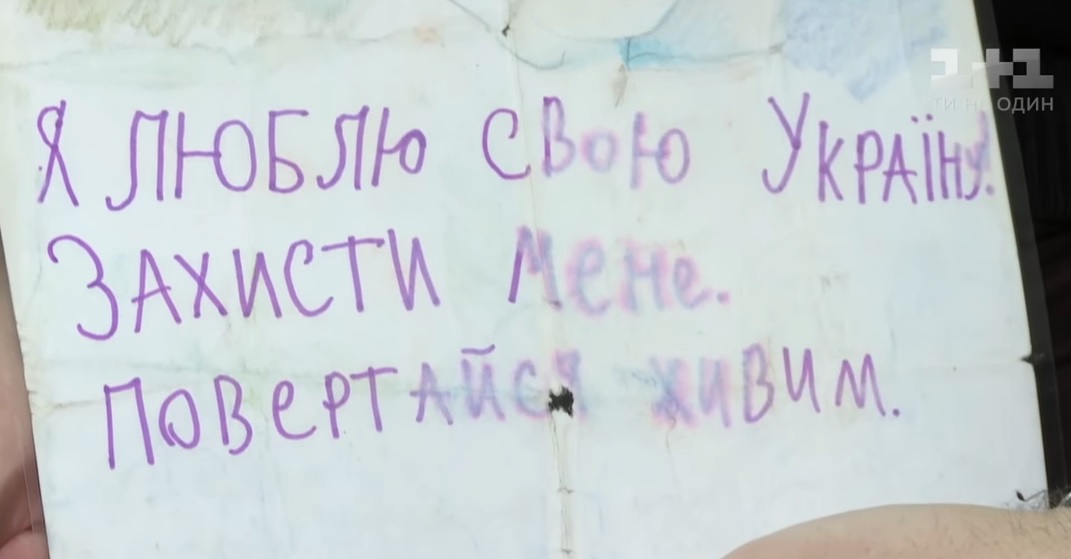 1+1
ТИ НЕ ОДИН
Я ЛЮБЛЮ СВОЮ УКРАЇНУ!
ЗАХИСТИ МЕНЕ.
ПОВЕРТАЙСЯ ЖИВИМ.